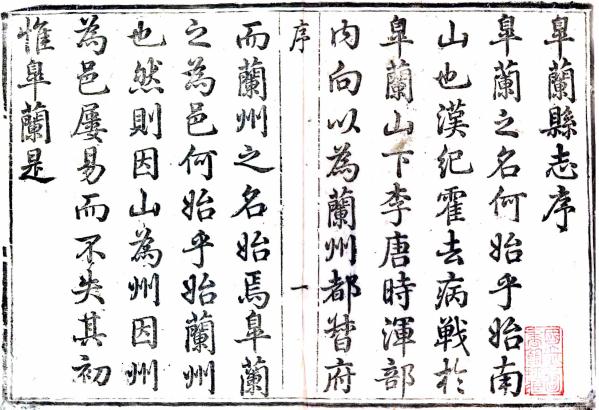 皐蘭縣志序
皐蘭之名何始乎始南
山也漢紀霍去病戰於
皐蘭山下李唐時渾部
内向以為蘭州都督府
序
一
而蘭州之名始焉皐蘭
之為邑何始乎始蘭州
也然則因山為州因州
為邑屢易而不失其初
惟皐蘭是